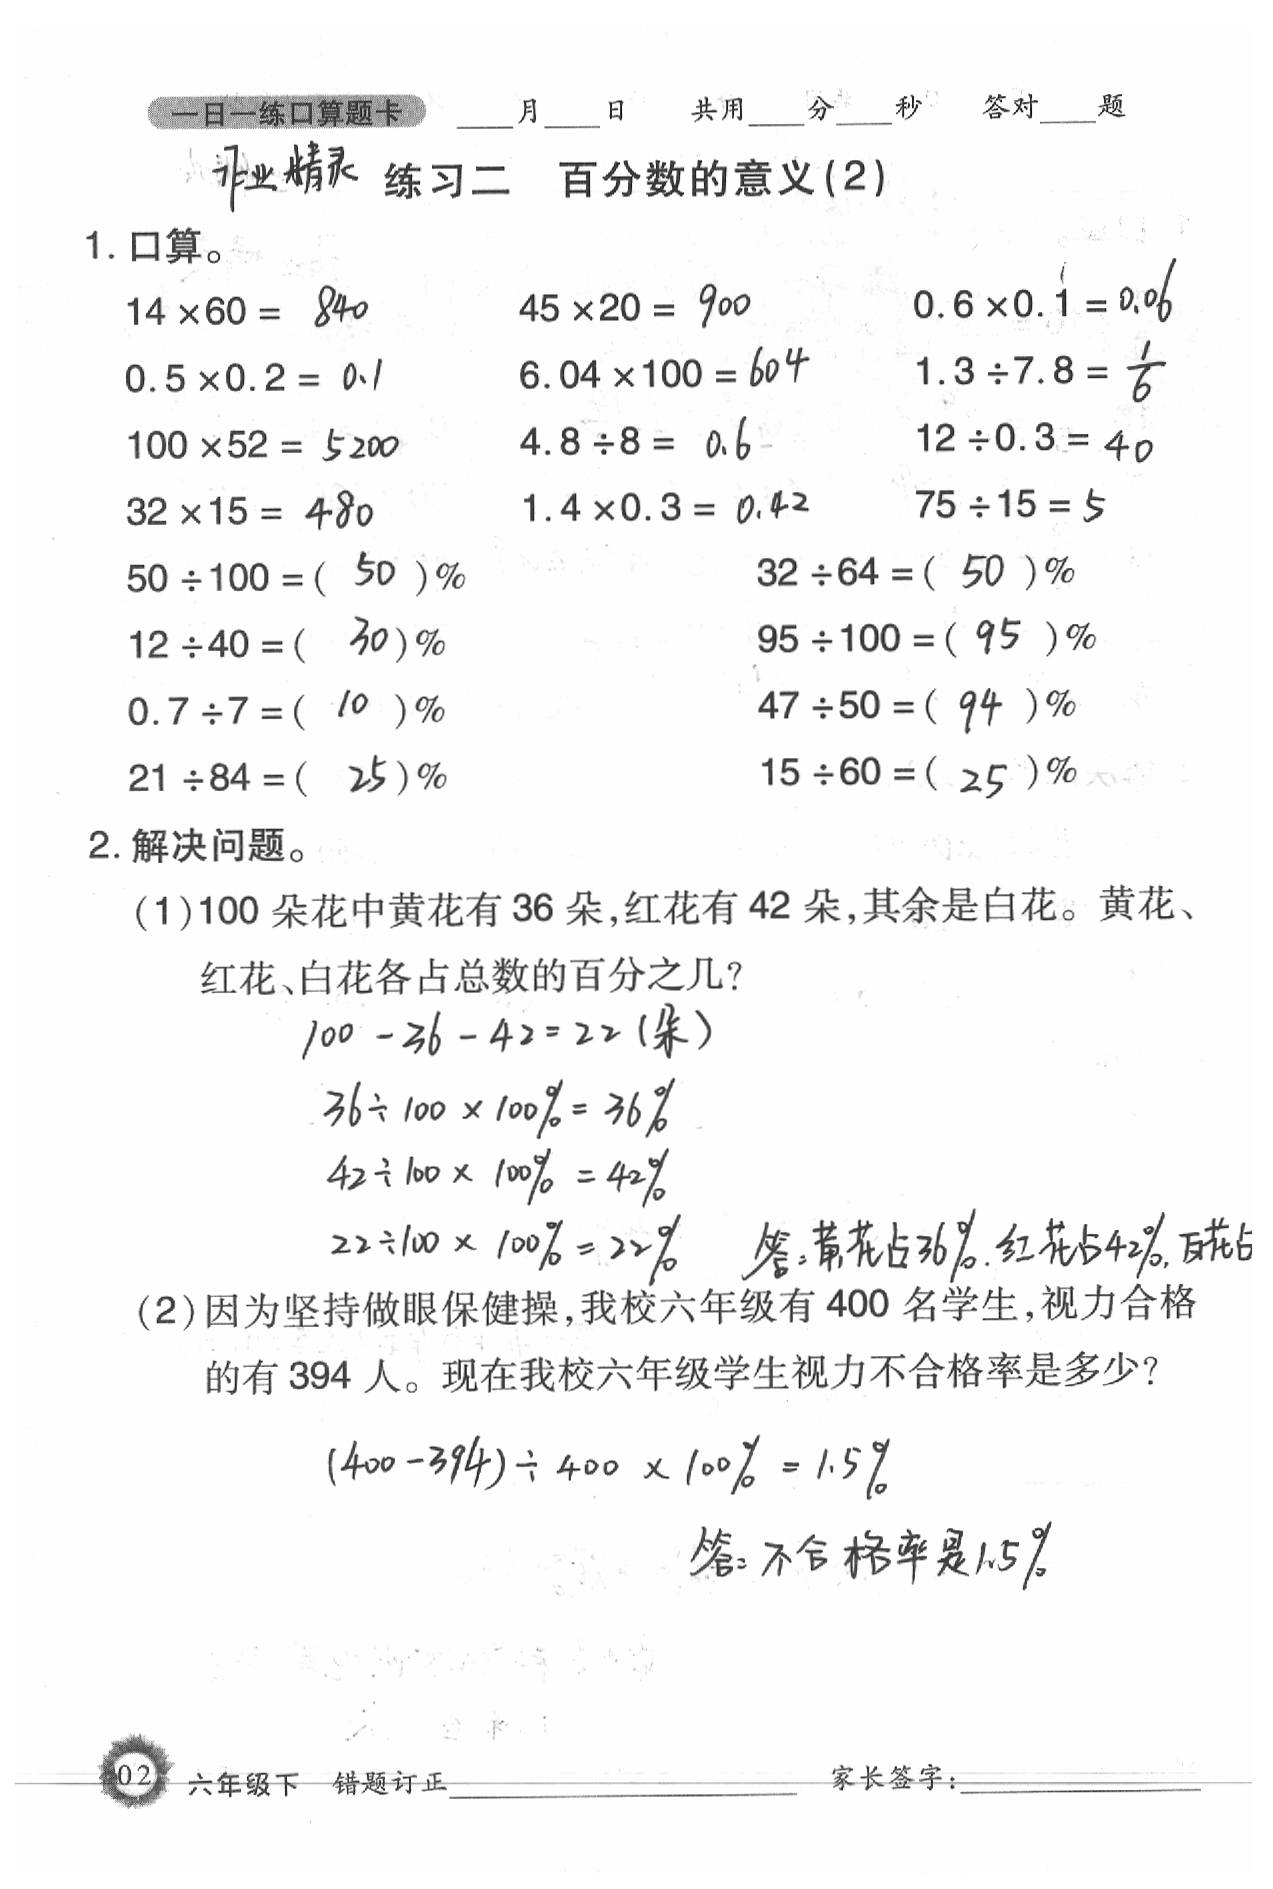 一日一练口算题卡 ____月____日 共用____分____秒 答对____题
作业精灵 练习二 百分数的意义(2)
1. 口算。
14×60= 840 45×20= 900 0.6×0.1= 0.06
0.5×0.2= 0.1 6.04×100= 604 1.3÷7.8= 1/6
100×52= 5200 4.8÷8= 0.6 12÷0.3= 40
32×15= 480 1.4×0.3= 0.42 75÷15= 5
50÷100=( 50 )% 32÷64=( 50 )%
12÷40=( 30 )% 95÷100=( 95 )%
0.7÷7=( 10 )% 47÷50=( 94 )%
21÷84=( 25 )% 15÷60=( 25 )%
2. 解决问题。
(1)100 朵花中黄花有 36 朵,红花有 42 朵,其余是白花。黄花、
红花、白花各占总数的百分之几?
100-36-42=22(朵)
36÷100×100%=36%
42÷100×100%=42%
22÷100×100%=22% 答:黄花占36%.红花占42%,百花占
(2)因为坚持做眼保健操,我校六年级有 400 名学生,视力合格
的有 394 人。现在我校六年级学生视力不合格率是多少?
(400-394)÷400×100%=1.5%
答:不合格率是1.5%
02 六年级下 错题订正____ 家长签字:____